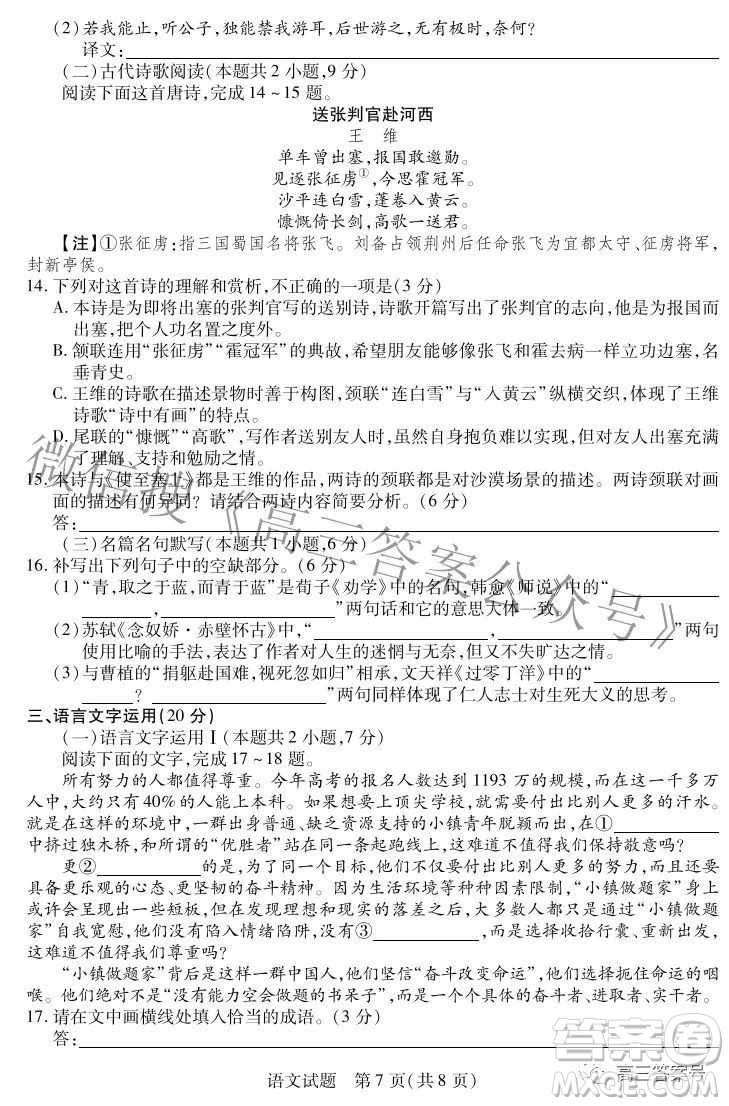 (2)若我能止,听公子,独能禁我游耳,后世游之,无有极时,奈何?
译文:
(二)古代诗歌阅读(本题共2小题,9分)
阅读下面这首唐诗,完成14~15题。
送张判官赴河西
王 维
单车曾出塞,报国敢邀勋。
见逐张征虏①,今思霍冠军。
沙平连白雪,蓬卷入黄云。
慷慨倚长剑,高歌一送君。
【注】①张征虏:指三国蜀国名将张飞。刘备占领荆州后任命张飞为宜都太守、征虏将军,
封新亭侯。
14. 下列对这首诗的理解和赏析,不正确的一项是(3分)
A. 本诗是为即将出塞的张判官写的送别诗,诗歌开篇写出了张判官的志向,他是为报国而
出塞,把个人功名置之度外。
B. 颔联连用“张征虏”“霍冠军”的典故,希望朋友能够像张飞和霍去病一样立功边塞,名
垂青史。
C. 王维的诗歌在描述景物时善于构图,颈联“连白雪”与“入黄云”纵横交织,体现了王维
诗歌“诗中有画”的特点。
D. 尾联的“慷慨”“高歌”,写作者送别友人时,虽然自身抱负难以实现,但对友人仍充满
了理解、支持和勉励之情。
15. 本诗与《使至塞上》都是王维的作品,两诗的颈联都是对沙漠场景的描述。两诗颈联对画
面的描述有何异同?请结合两诗内容简要分析。(6分)
答:
(三)名篇名句默写(本题共1小题,6分)
16. 补写出下列句子中的空缺部分。(6分)
(1)“青,取之于蓝,而青于蓝”是荀子《劝学》中的名句,韩愈《师说》中的“
,”两句话和它的意思大体一致。
(2)苏轼《念奴娇·赤壁怀古》中,“,”两句
使用比喻的手法,表达了作者对人生的迷惘与无奈,但又不失旷达的情怀。
(3)与曹植的“捐躯赴国难,视死忽如归”相承,文天祥《过零丁洋》中的“
?”两句同样体现了仁人志士对生死大义的思考。
三、语言文字运用(20分)
(一)语言文字运用Ⅰ(本题共2小题,7分)
阅读下面的文字,完成17~18题。
所有努力的人都值得尊重。今年高考的报名人数达到1193万的规模,而在这一千多万
人中,大约只有40%的人能上本科。如果想要上顶尖学校,就需要付出比别人更多的汗水。
就是在这样的环境中,一群出身普通、缺乏资源支持的小镇青年脱颖而出,在①
中挤过独木桥,和所谓的“优胜者”站到同一条起跑线上,这难道不值得我们保持敬意吗?
更②的是,为了同一个目标,他们不仅要付出比别人更多的努力,而且还要
具备更乐观的心态、更坚韧的奋斗精神。因为生活环境等种种因素限制,“小镇做题家”身上
或许会有一些短板,但在发现理想和现实的落差之后,大多数人选择迎难而上。“小镇做题
家”自我勉励,他们没有陷入情绪陷阱,没有③,而是选择收拾行囊、重新出发,
这难道不值得我们尊重吗?
“小镇做题家”背后是这样一群中国人,他们坚信“奋斗改变命运”,他们选择扼住命运的咽
喉。他们绝不是“没有能力空会做题的书呆子”,而是真真正正的奋斗者、进取者、实干者。
17. 请在文中画横线处填入恰当的成语。(3分)
答:
语文试题 第7页(共8页)
微信搜《高三答案公众号》
答案圈
高三答案号
MXQE.COM